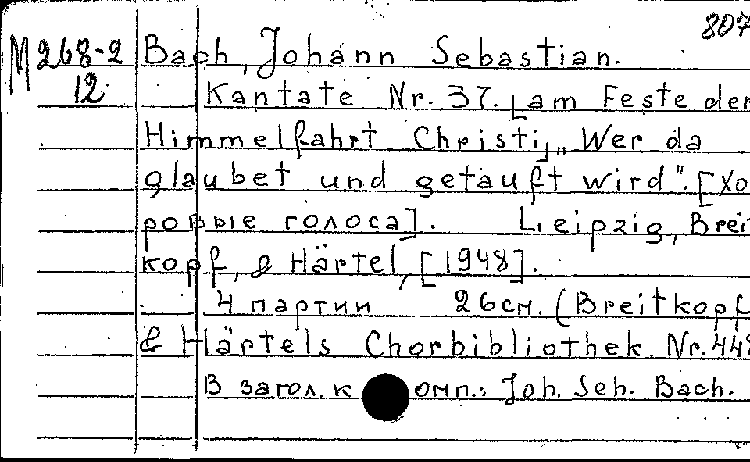 807
M 268-2 Bach, Johann Sebastian.
12 Kantate Nr. 37. [am Feste der
Himmelfahrt Christi] „Wer da
glaubet und getauft wird". [Хо
ровые голоса]. Leipzig, Breit
kopf, & Härtel, [1948].
4 партии 26см. (Breitkopf
& Härtels Chorbibliothek Nr.
В загол. к омп.: Joh. Seb. Bach.